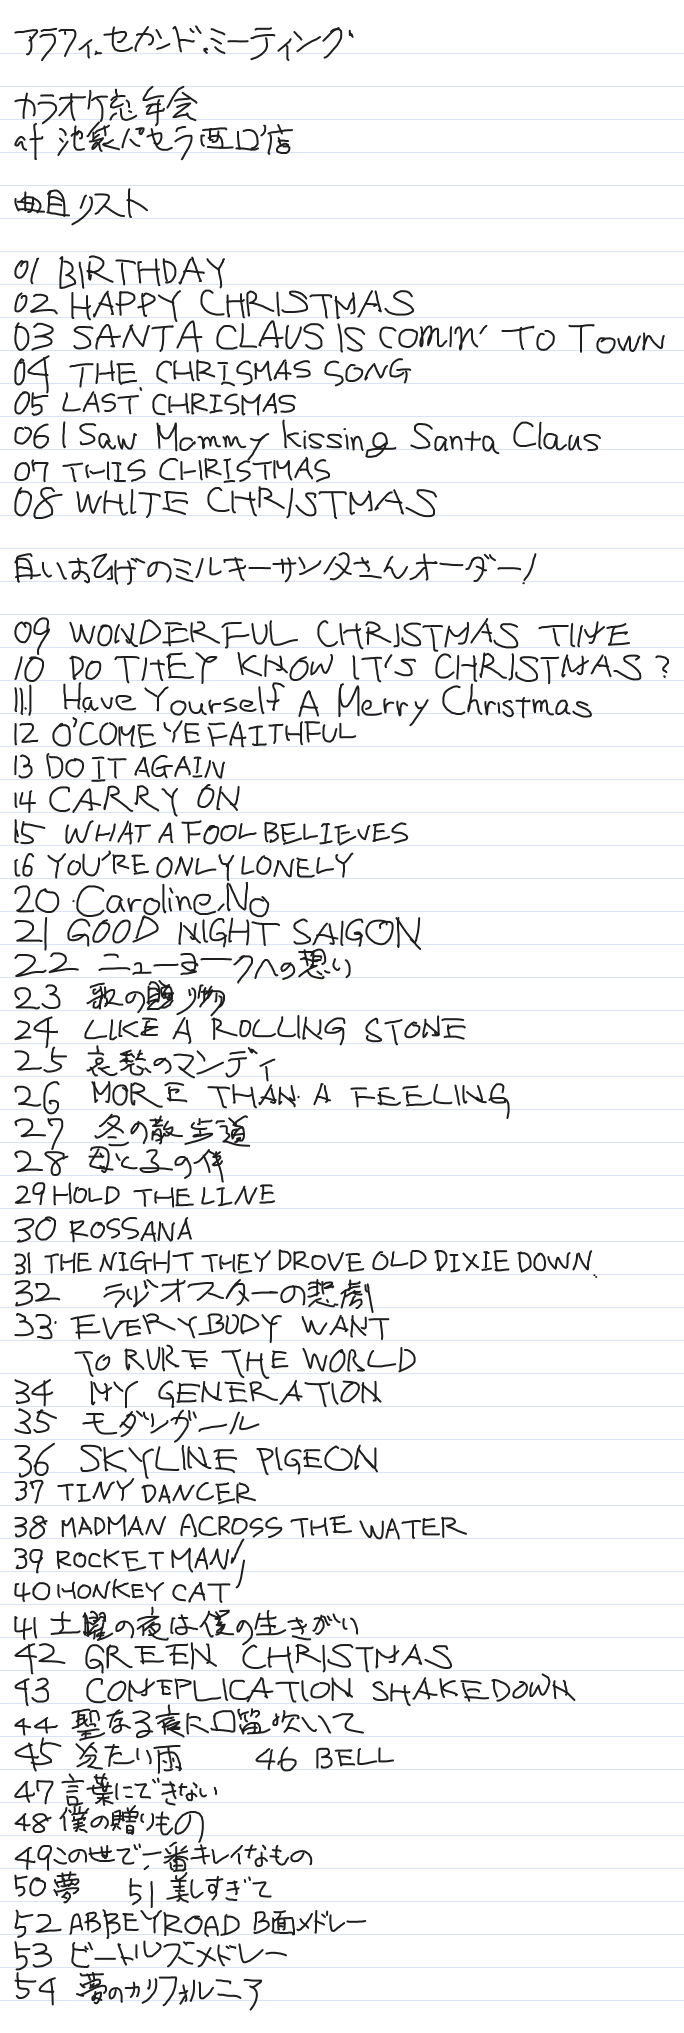 アラフィ.セカンド.ミーティング
カラオケ忘年会
at 池袋パセラ西口店
曲目リスト
01 BIRTHDAY
02 HAPPY CHRISTMAS
03 SANTA CLAUS IS COMIN' TO TOWN
04 THE CHRISMAS SONG
05 LAST CHRISMAS
06 I Saw Mommy kissing Santa Claus
07 THIS CHRISTMAS
08 WHITE CHRISTMAS
白いおひげのミルキーサンタさんオーダー!
09 WONDERFUL CHRISTMAS TIME
10 DO THEY KNOW IT'S CHRISTMAS ?
11 Have Yourself A Merry Christmas
12 O'COME YE FAITHFUL
13 DO IT AGAIN
14 CARRY ON
15 WHAT A FOOL BELIEVES
16 YOU'RE ONLY LONELY
20 Caroline,No
21 GOOD NIGHT SAIGON
22 ニューヨークへの想い
23 歌の贈り物
24 LIKE A ROLLING STONE
25 哀愁のマンディ
26 MORE THAN A FEELING
27 冬の散歩道
28 母と子の絆
29 HOLD THE LINE
30 ROSSANA
31 THE NIGHT THEY DROVE OLD DIXIE DOWN
32 ラジオスターの悲劇
33 EVERYBODY WANT
TO RURE THE WORLD
34 MY GENERATION
35 モダンガール
36 SKYLINE PIGEON
37 TINY DANCER
38 MADMAN ACROSS THE WATER
39 ROCKET MAN/
40 HONKEY CAT
41 土曜の夜は僕の生きがい
42 GREEN CHRISTMAS
43 COMEPLICATION SHAKEDOWN
44 聖なる夜に口笛吹いて
45 冷たい雨 46 BELL
47 言葉にできない
48 僕の贈りもの
49 この世で一番キレイなもの
50 夢 51 美しすぎて
52 ABBEYROAD B面メドレー
53 ビートルズメドレー
54 夢のカリフォルニア